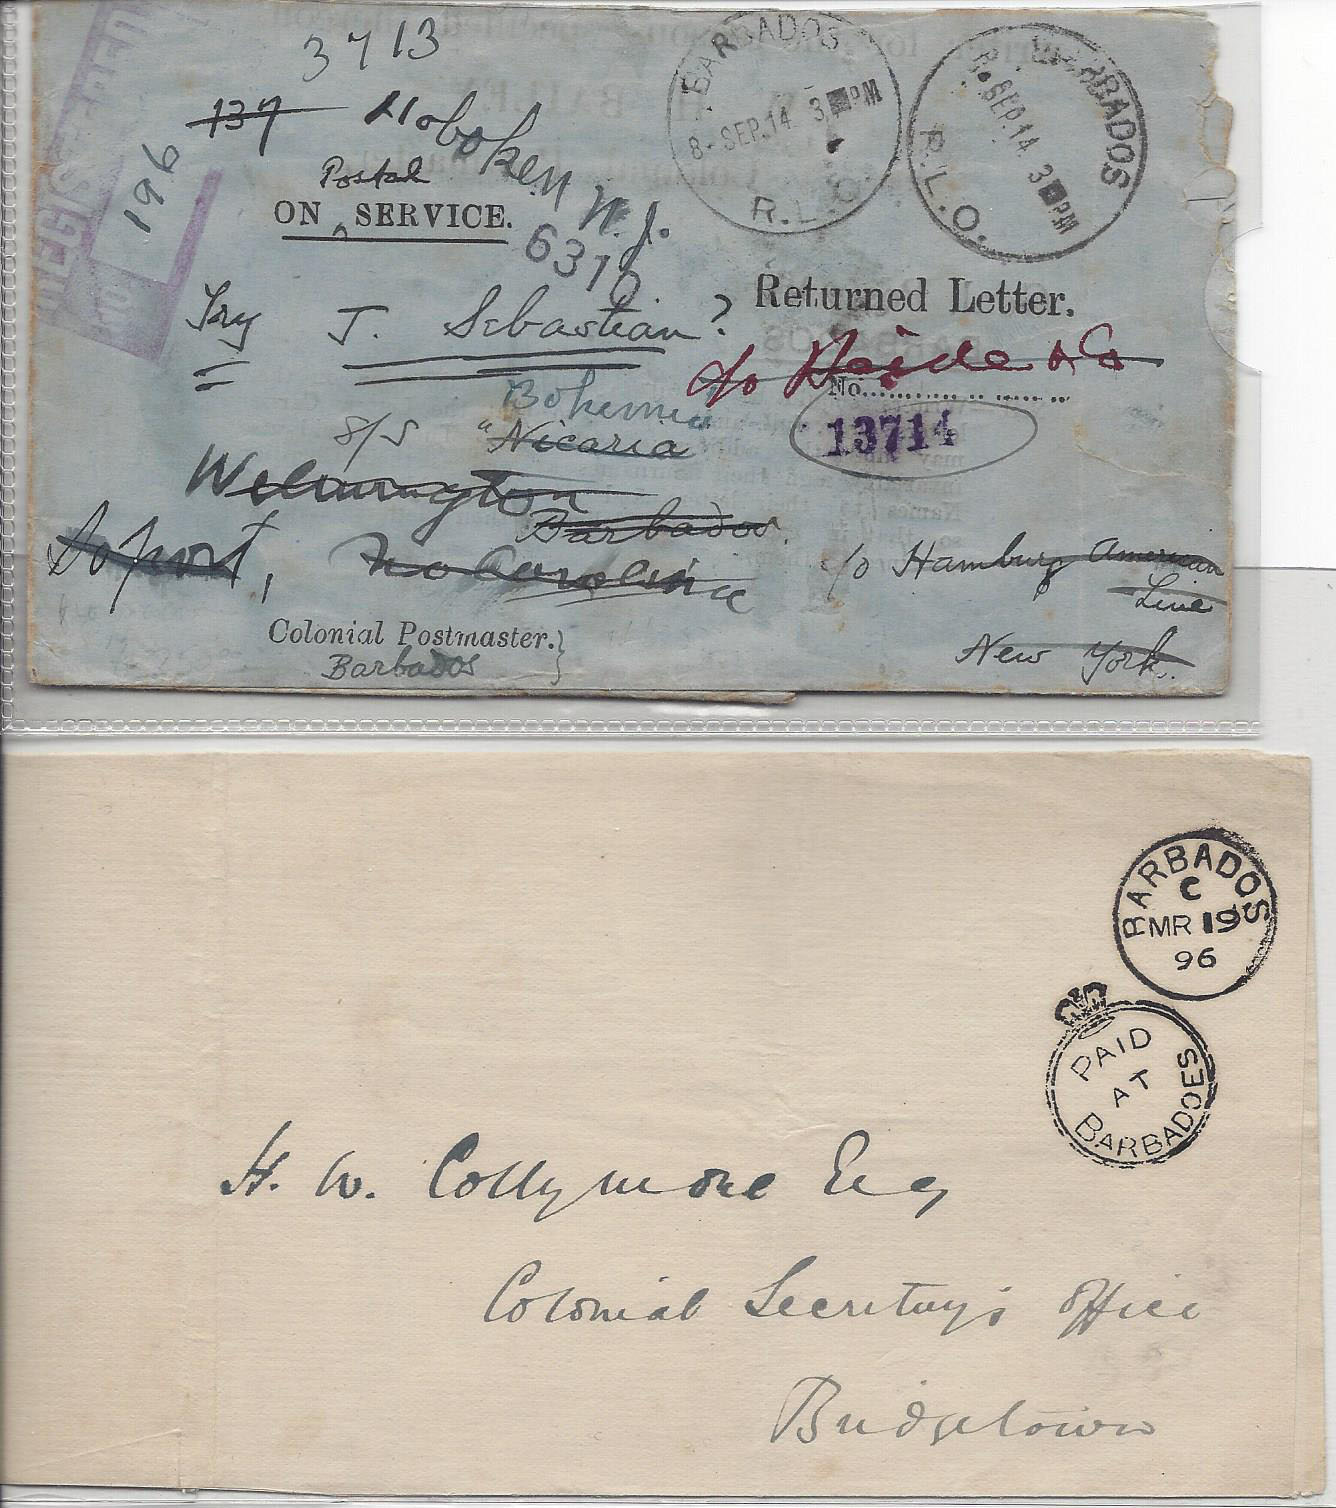 3713
137 Hoboken N.J.
196
Postal
ON SERVICE.
6310
BARBADOS
8-SEP.14 3 PM
R.L.O.
BARBADOS
SEP.14 3 PM
R.L.O.
Returned Letter.
Try J. Sebastian?
c/o Heide & Co
No.
13714
Bohemia
S/S "Nicaria
Wilmington
Barbados.
No Carolina
c/o Hamburg American
Line
New York.
Colonial Postmaster.}
Barbados
BARBADOS
C
MR 19
96
PAID
AT
BARBADOES
H. W. Collymore Esq
Colonial Secretary's Office
Bridgetown